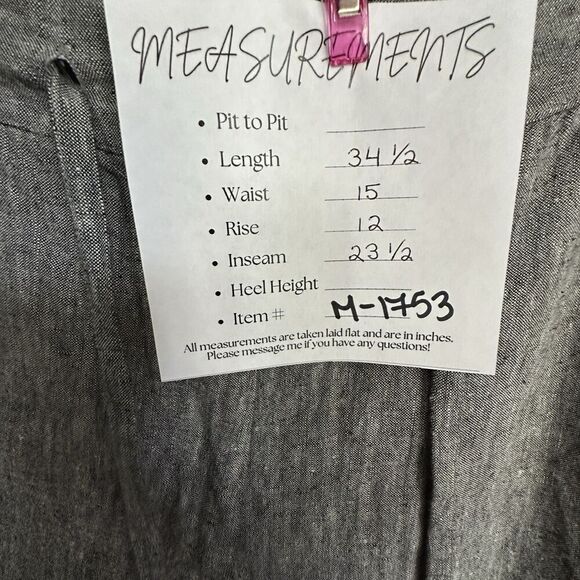 MEASUREMENTS
• Pit to Pit
• Length 34 1/2
• Waist 15
• Rise 12
• Inseam 23 1/2
• Heel Height
• Item # M-1753
All measurements are taken laid flat and are in inches.
Please message me if you have any questions!